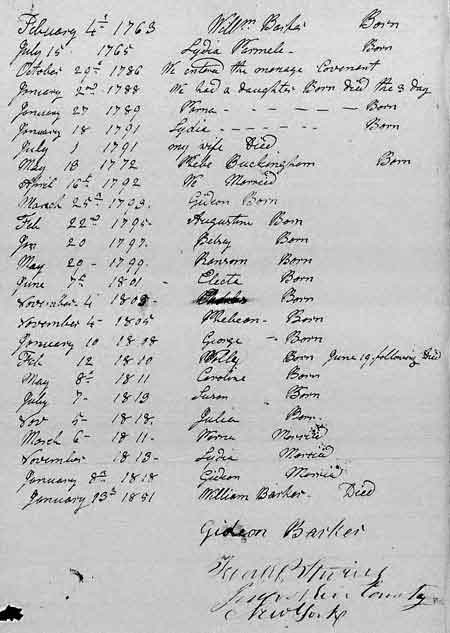 February 4th 1763 Willm Barker Born
July 15 1765 Lydia Parmele Born
October 29th 1786 We entered the marage Covenant
January 2nd 1788 We had a daughter Born died the 3 day
January 27 1789 Varna - - - - - Born
January 18 1791 Lydia - - - - - Born
July 1 1791 my wife Died
May 13 1772 Phebe Buckingham Born
April 16th 1792 We Married
March 25th 1793 Gideon Born
Feb 22nd 1795 Augustine Born
Jan 20 1797 Betsy Born
May 20 - 1799 Ransom Born
June 7th 1801 - Electa Born
November 4 1803 Born
November 4 - 1805 Born
January 10 1808 George - Born
Feb 12 1810 Born June 19 following Died
May 8th 1811 Caroline Born
July 7 - 1813 Susan Born
Nov 5 - 1818 Julia Born
March 6 - 1811 - Varna Married
November 1813 - Lydia Married
January 8th 1818 Gideon Married
January 23d 1851 William Barker - Died
Gideon Barker
County
New York